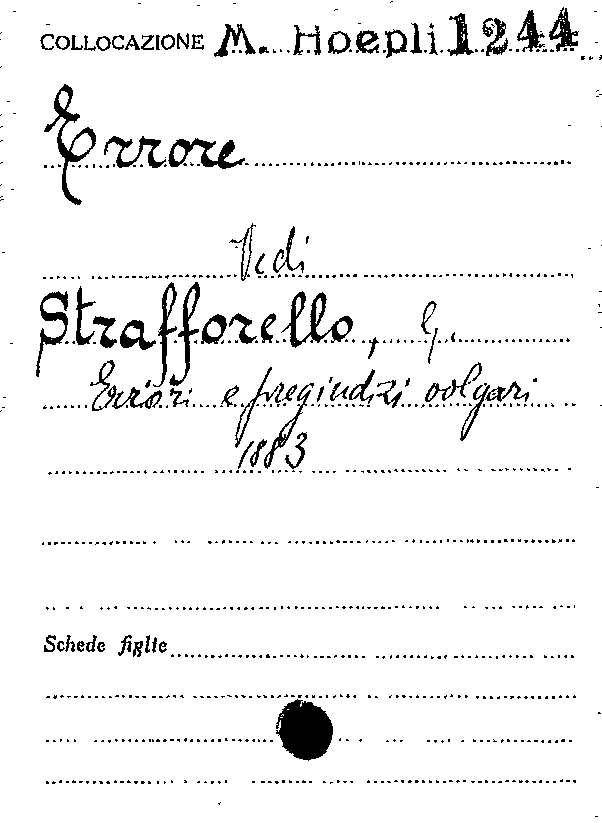 COLLOCAZIONE M. Hoepli 1244
Errore
Vedi
Strafforello, G.
Errori e pregiudizi volgari
1883
Schede figlie